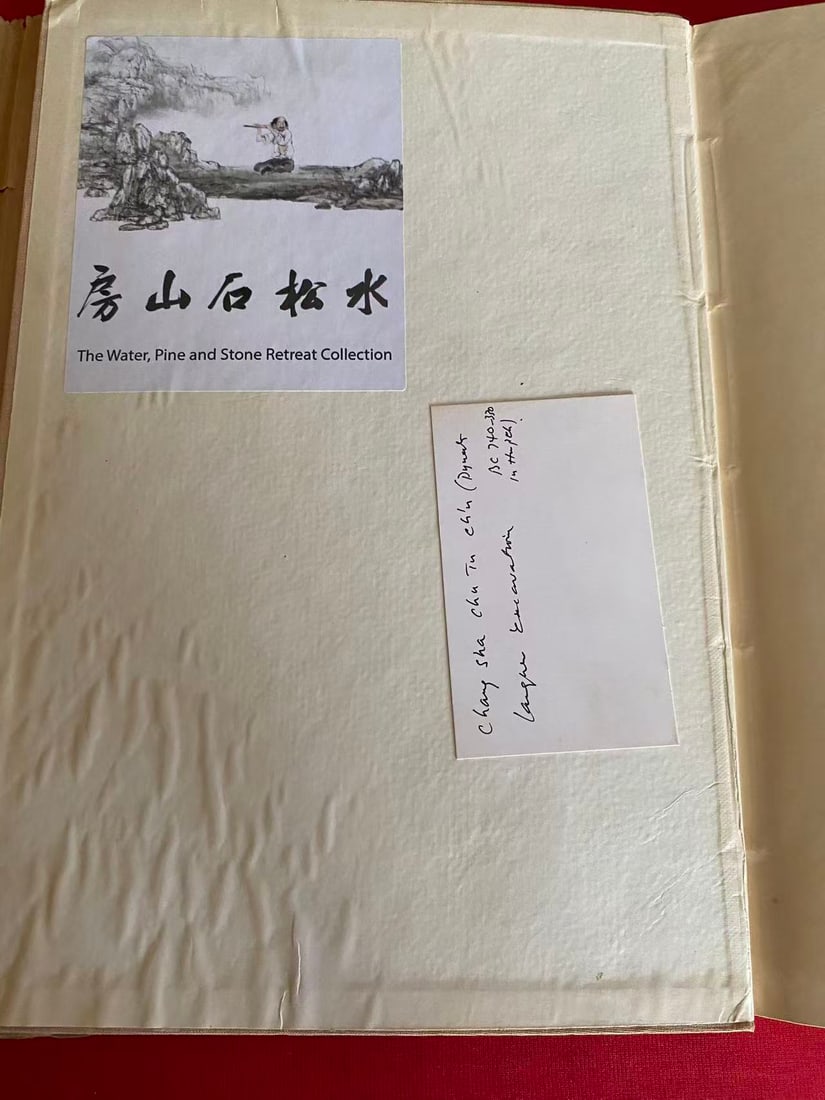 水松石山房
The Water, Pine and Stone Retreat Collection
Chang Sha Chu Tu Ch'u (Dynast
BC 740-330
in Hupeh)
Excavation